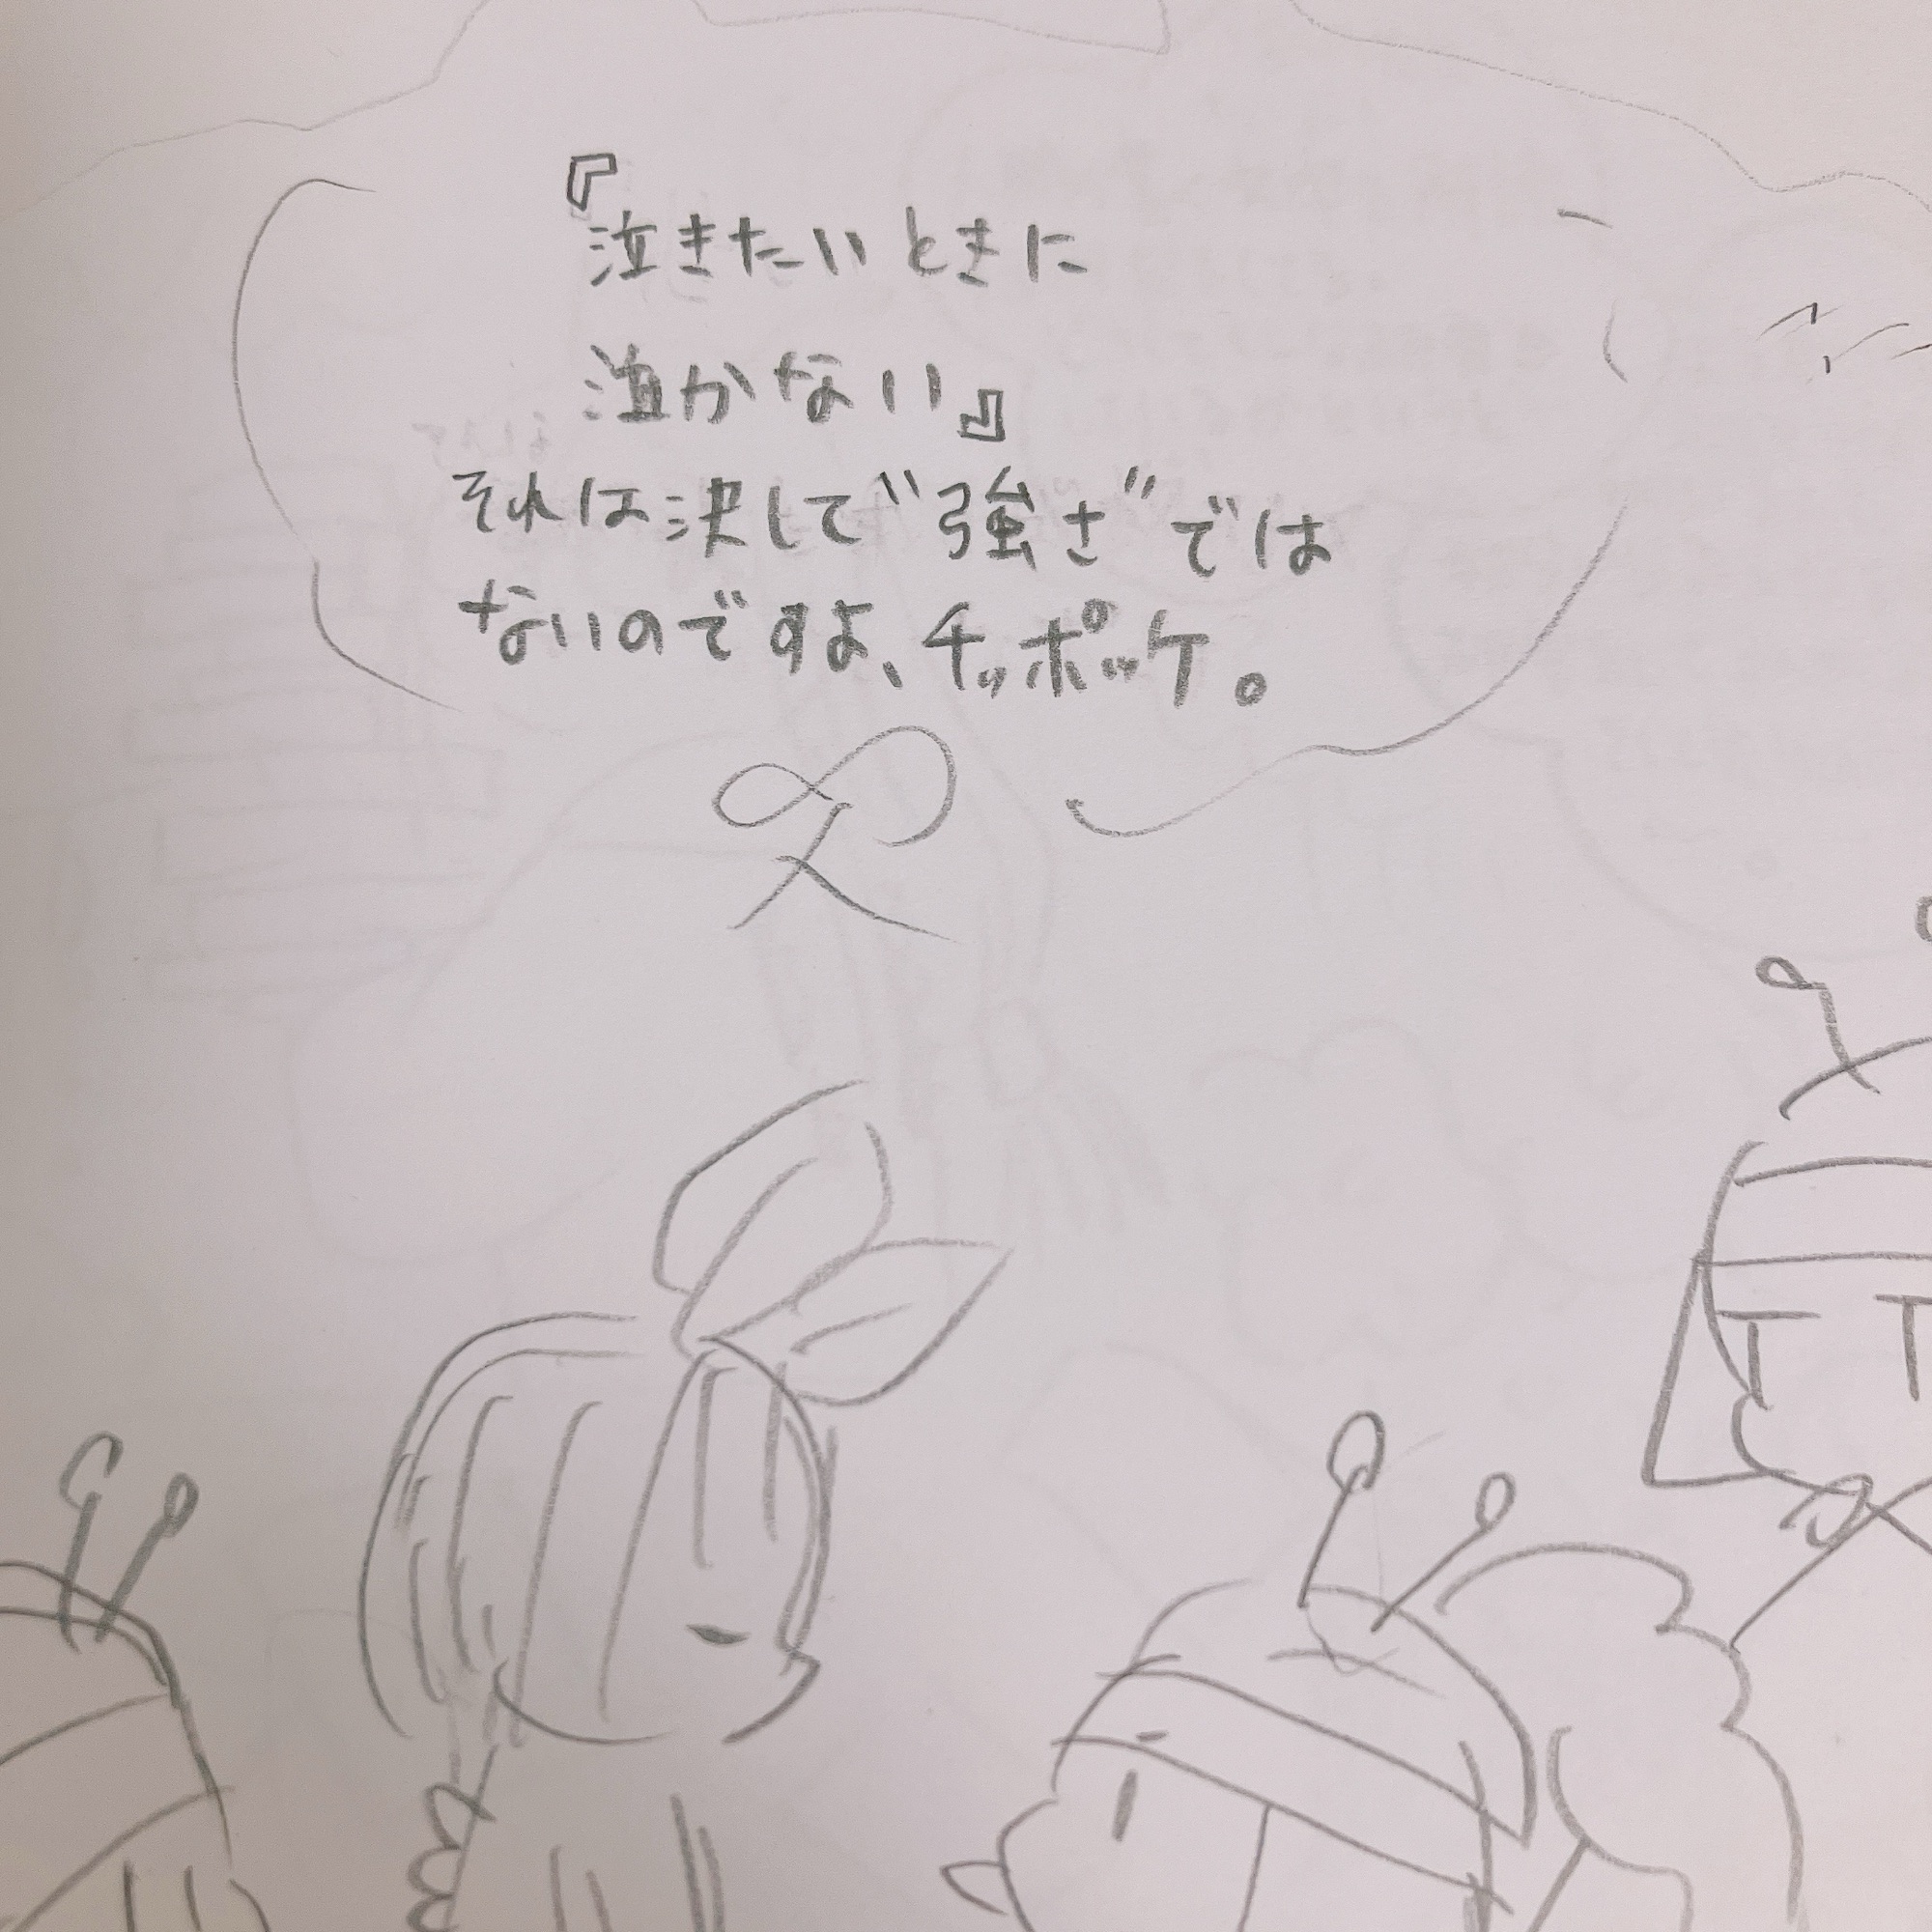 『泣きたいときに
泣かない』
それは決して“強さ”では
ないのですよ、チッポッケ。